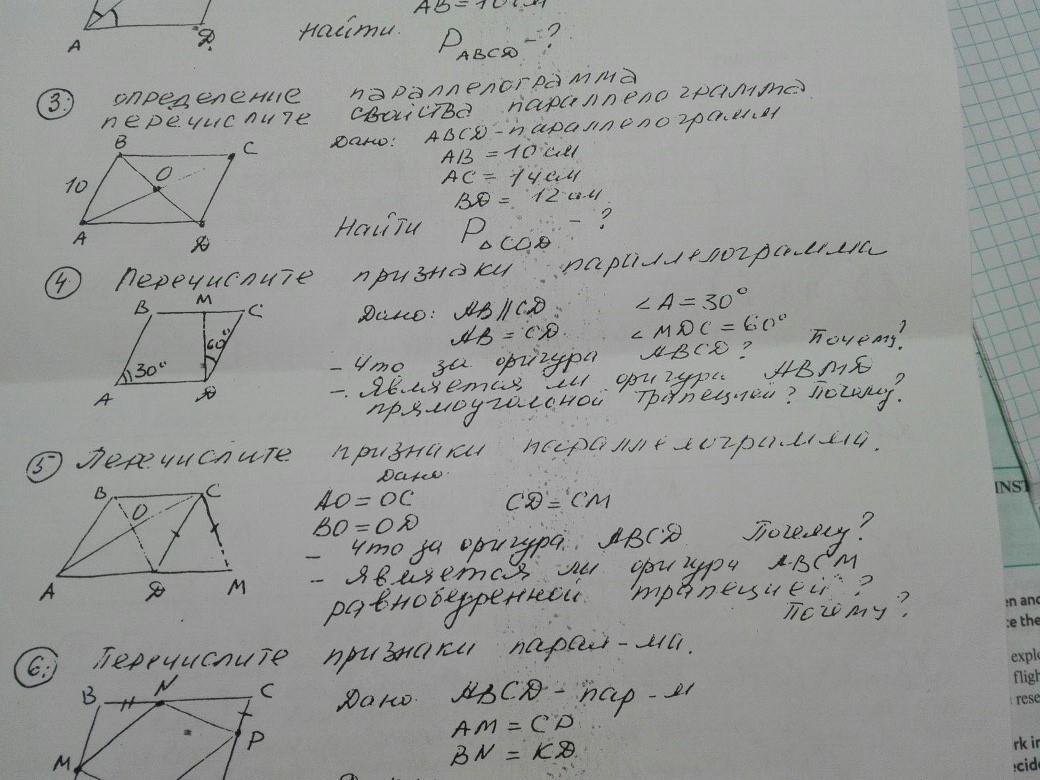 AB = 10 см
A
D
Найти P ABCD - ?
3: определение параллелограмма
перечислите свойства параллелограмма
B
C
10
O
A
D
Дано: ABCD - параллелограмм
AB = 10 см
AC = 14 см
BD = 12 см
Найти P △COD - ?
4 Перечислите признаки параллелограмма
B
M
C
60°
30°
A
D
Дано: AB || CD ∠A = 30°
AB = CD ∠MDC = 60°
- Что за фигура ABCD? Почему?
- Является ли фигура ABMD
прямоугольной трапецией? Почему?
5 Перечислите признаки параллелограмма.
B
C
O
A
D
M
Дано:
AO = OC CD = CM
BO = OD
- Что за фигура ABCD Почему?
- Является ли фигура ABCM
равнобедренной трапецией?
Почему?
6: Перечислите признаки парал-ма.
B
N
C
P
M
Дано: ABCD - пар-м
AM = CP
BN = KD
INST
en and
ce the
explo
fligh
rese
rk in
ecide